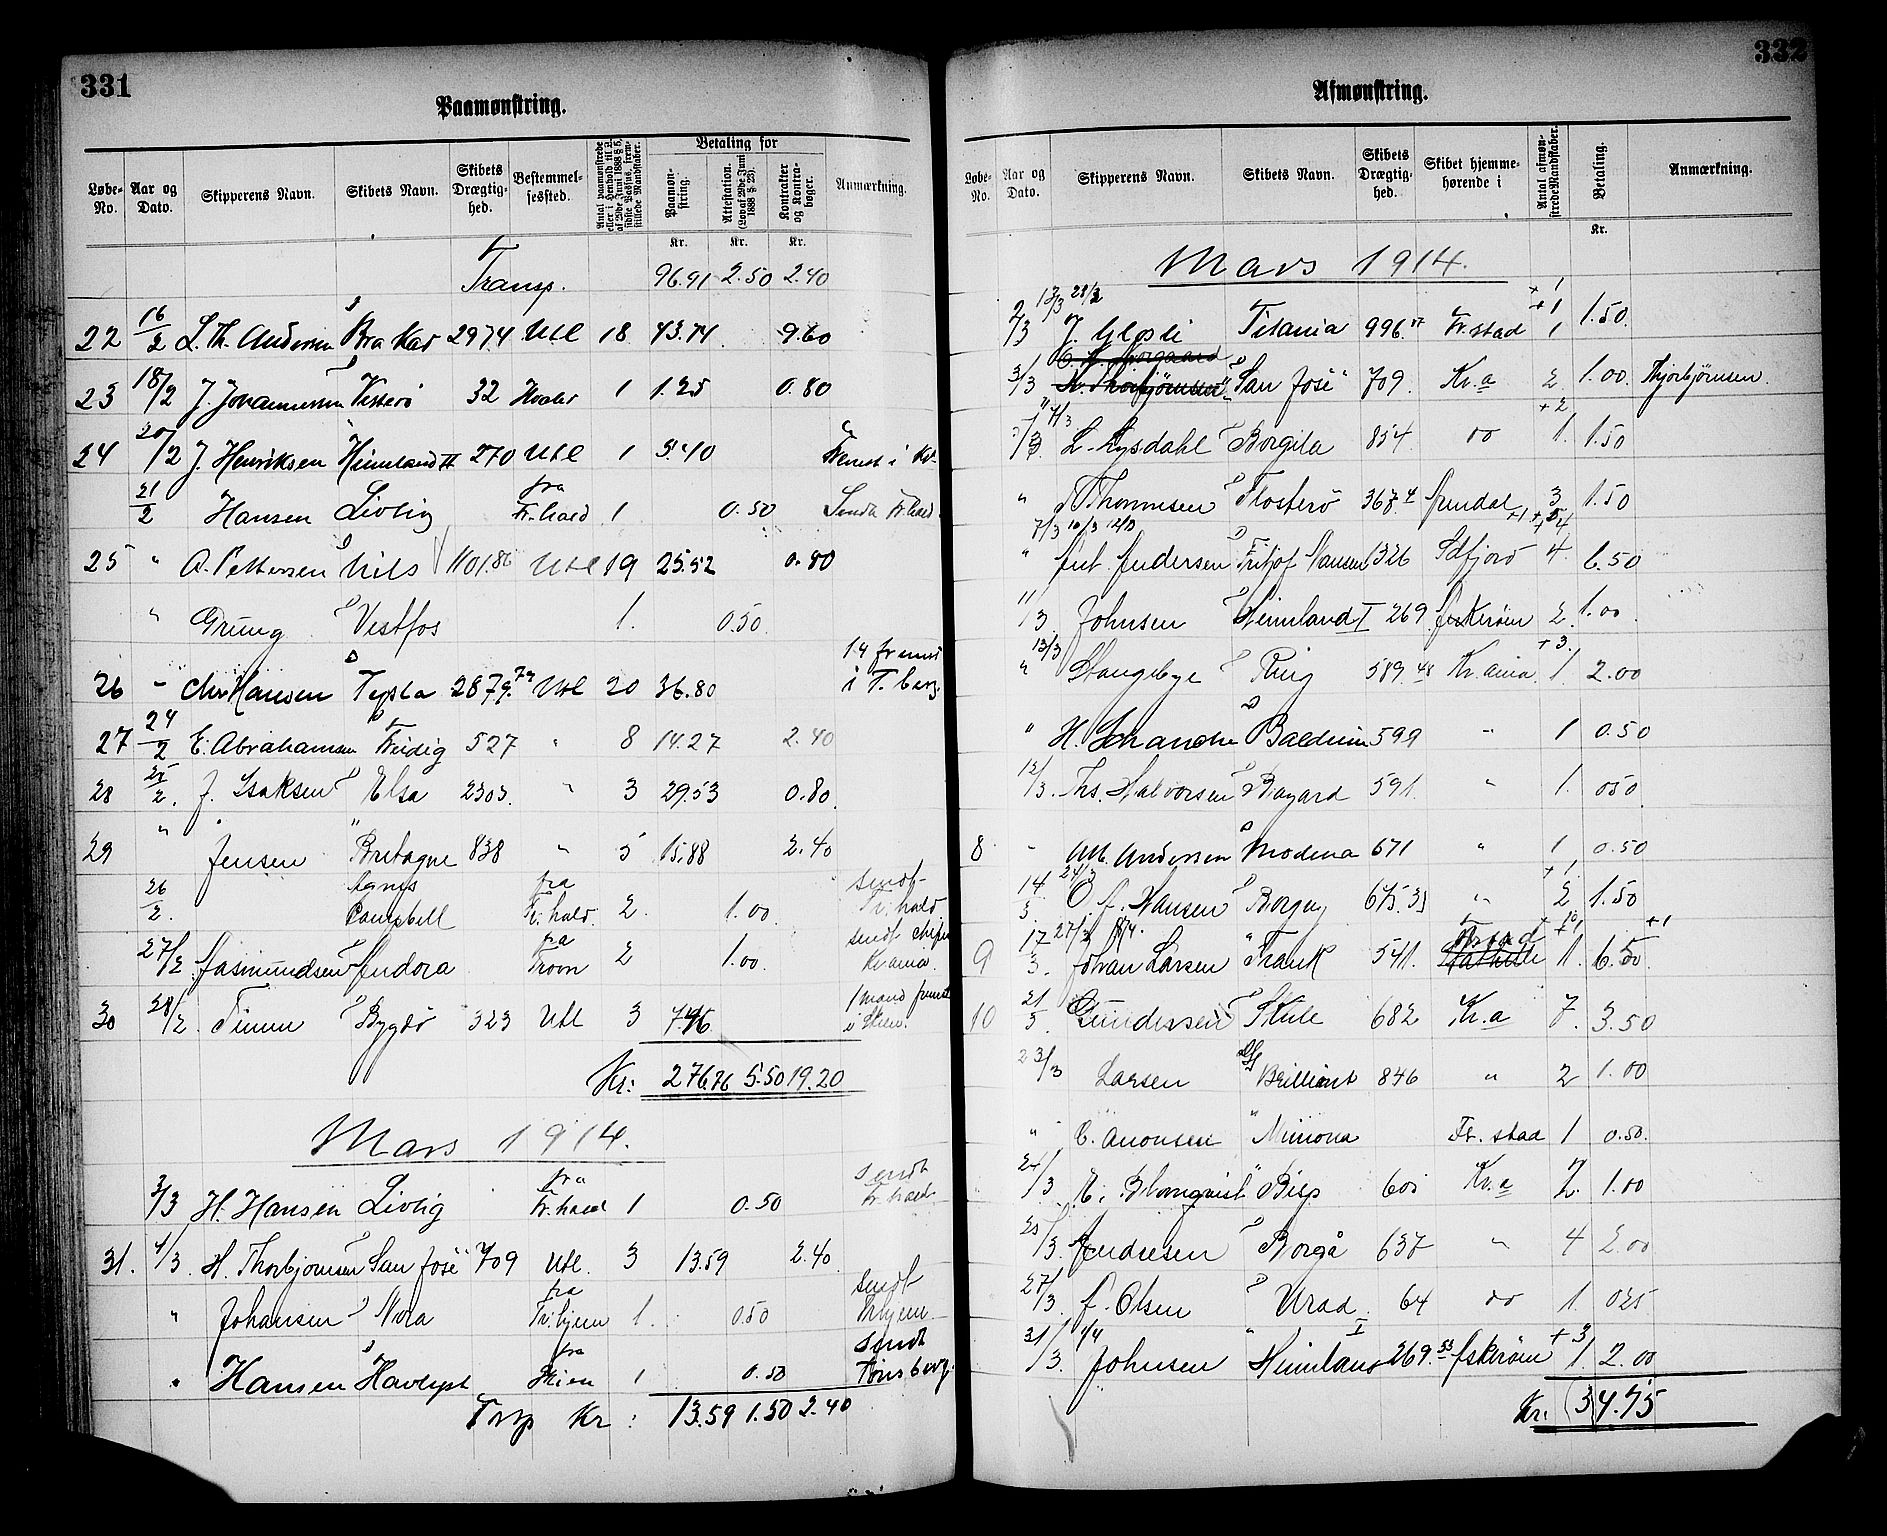 331
Paamønstring.
Løbe-No. Aar og Dato. Skipperens Navn. Skibets Navn. Skibets Drægtighed. Bestemmelsessted. Antal paamønstrede eller i Henhold til L. af 29de Juni 1888 § 5, sidste Passus, fremstillede Mandskaber. Betaling for Paamønstring. Attestation. (Lov af 29de Juni 1888 § 23). Kontrakter og Kontrabøger. Anmærkning.
Kr. Kr. Kr.
Transp. 96.91 2.50 2.40
22 16/2 L. Th. Andersen Bra Kar 2974 Utl 18 43.74 9.60
23 18/2 J. Johannessen Vesterö 32 Hvaler 1 1.25 0.80
24 20/2 J. Henriksen Heimland II 270 Utl 1 5.40 Fremst i
21/2 Hansen Livlig fra Fr.hald 1 0.50 Sendt Fr.hald
25 " A. Pettersen Nils 1101.86 Utl 19 25.52 0.80
" Grung Vestfos 1. 0.50
26 " Chr Hansen Tysla 2879.79 Utl 20 36.80 14 fremst i T.berg
27 24/2 E. Abrahamsen Freidig 527 " 8 14.27 2.40
28 25/2. J. Isaksen Elsa 2303. " 3 29.53 0.80.
29 " Jensen Bretagne 838 " 5 15.88 2.40
26/2. Agnes Campbell fra Fr.hald. 2. 1.00. sendt Fr.hald
27/2 Jasmundsen Andora fra 2 1.00. sendt Kr.ania.
30 28/2. Timm Bygdö 323 Utl 3 7.46 1 mand fremst i Skien.
Kr: 276.76 5.50 19.20
Mars 1914.
3/3 H. Hansen Livlig fra Fr.hald 1 0.50 sendt Fr.hald
31. 4/3. H. Thorbjörnsen San José 709 Utl. 3 13.59 2.40.
" Johansen Nora fra Tr.hjem 1. 0.50 sendt Trhjem
" Hansen Havlyst fra Skien 1 0.50 sendt Tönsberg.
Trsp Kr: 13.59 1.50 2.40
332
Afmønstring.
Løbe-No. Aar og Dato. Skipperens Navn. Skibets Navn. Skibets Drægtighed. Skibet hjemmehørende i Antal afmønstrede Mandskaber. Betaling. Anmærkning.
Kr.
Mars 1914.
13/3 28/3 + 1
2/3 J. Gjösli Titania 996.17 Fr.stad + 1 1 1.50.
O. N. Norgaard
3/3 H. Thorbjörnsen "San José" 709. Kr.a 2 1.00. Thjorbjörnsen.
7/3 + 2
L. Lysdahl Borgila 854. do 1. 1.50
" Thommesen Flosterö 367.4 Arendal 3 1.50
7/3 10/3 12/3 +1 + 4
" Ant. Andersen Fritjof Nansen 1326 Sdfjord 4. 6.50
11/3. Johnsen Heimland I 269 Askeröen 2. 1.00
13/3 + 3.
" Stangebye Ring 589.48 Kr.ania 1. 2.00
" H. Schanche Balduin 599 " 1 0.50
12/3. Ths. Halvorsen Bayard 591. " 1. 050
8 " Alb. Andersen Modena 671 " 1 0.50
24/3 + 1.
14/3 O A. Hansen Borgny 675.33 " 2 1.50
27/3 8/4. Fr.stad + 10 +1 +1
9 17/3. Johan Larsen Frank 541. 1. 6.50
10 21/3. Gundersen Skule 682 Kr.a 7. 3.50
23/3 Larsen D/S Brilliant 846 " 2 1.00
" C. Amonsen Minona Fr. stad 1 0.50.
24/3 E. Blomqvist Bisp 605 Kr.a 2. 1.00
25/3. Andresen Borgå 637 " 4 2.00
27/3. A. Olsen Urad. 64 do 1. 025
31/3. 4/4 Johnsen Heimland I 269.53 Askeröen + 3 1. 2.00
Kr: 34.75